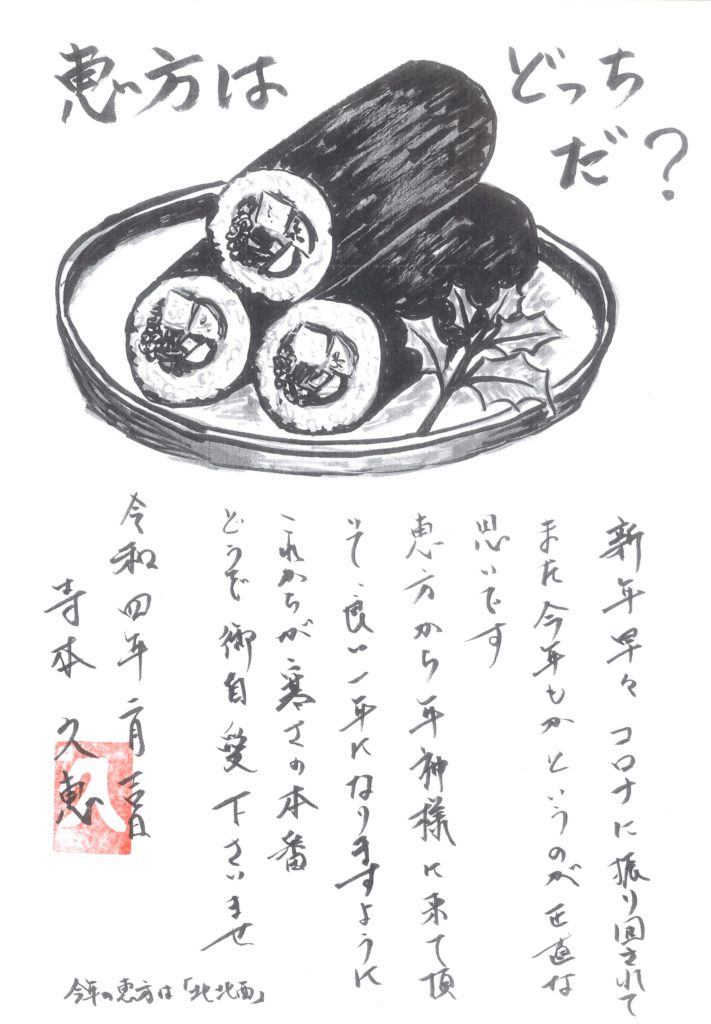 恵方は
どっち
だ？
新年早々コロナに振り回されて
また今年もかというのが正直な
思いです
恵方から年神様に来て頂
いて、良い一年になりますように
これからが寒さの本番
どうぞ御自愛下さいませ
令和四年二月吉日
寺本久恵
久
今年の恵方は「北北西」